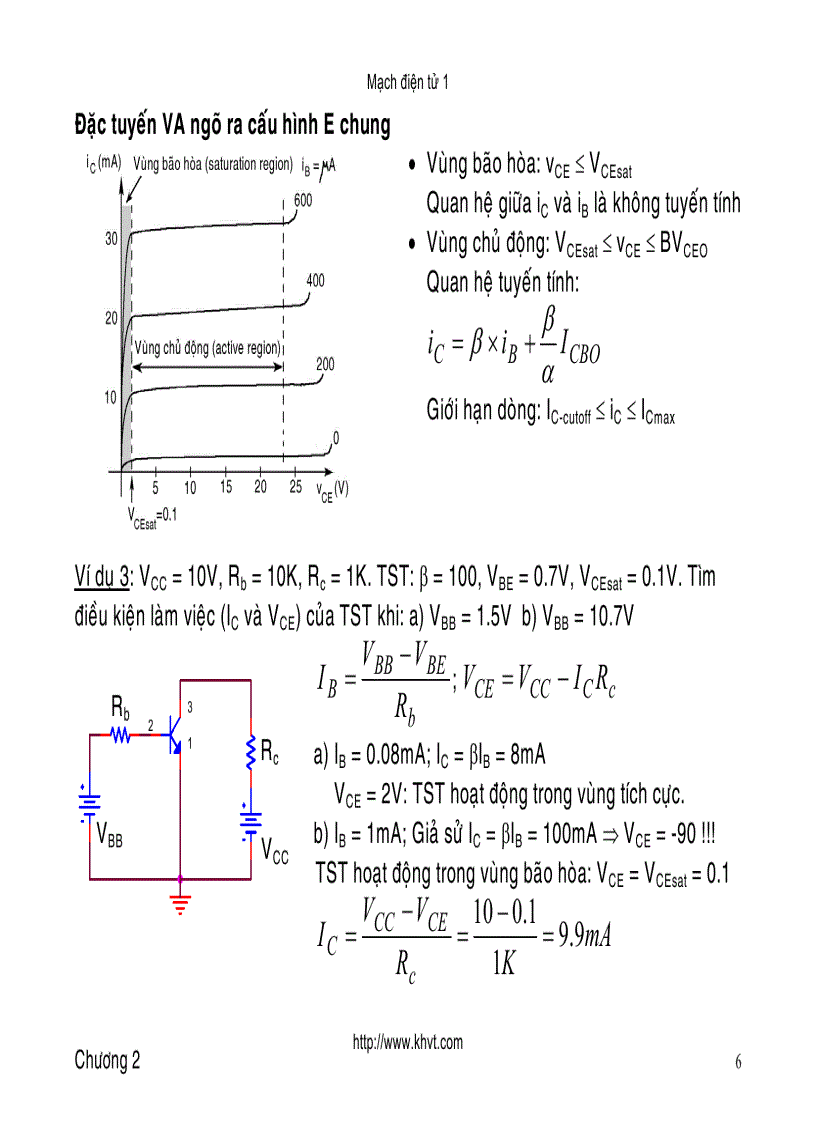 Mạch điện tử 1
Đặc tuyến VA ngõ ra cấu hình E chung
i_C (mA) Vùng bão hòa (saturation region) i_B = μA
600
30
400
20
Vùng chủ động (active region)
200
10
0
5 10 15 20 25 v_CE (V)
V_CEsat=0.1
• Vùng bão hòa: v_CE ≤ V_CEsat
Quan hệ giữa i_C và i_B là không tuyến tính
• Vùng chủ động: V_CEsat ≤ v_CE ≤ BV_CEO
Quan hệ tuyến tính:
i_C = β × i_B + β/α I_CBO
Giới hạn dòng: I_C-cutoff ≤ i_C ≤ I_Cmax
Ví dụ 3: V_CC = 10V, R_b = 10K, R_c = 1K. TST: β = 100, V_BE = 0.7V, V_CEsat = 0.1V. Tìm
điều kiện làm việc (I_C và V_CE) của TST khi: a) V_BB = 1.5V b) V_BB = 10.7V
I_B = (V_BB − V_BE)/R_b ; V_CE = V_CC − I_C R_c
R_b
2
3
1
R_c
V_BB
V_CC
a) I_B = 0.08mA; I_C = βI_B = 8mA
V_CE = 2V: TST hoạt động trong vùng tích cực.
b) I_B = 1mA; Giả sử I_C = βI_B = 100mA ⇒ V_CE = -90 !!!
TST hoạt động trong vùng bão hòa: V_CE = V_CEsat = 0.1
I_C = (V_CC − V_CE)/R_c = (10 − 0.1)/1K = 9.9mA
http://www.khvt.com
Chương 2
6